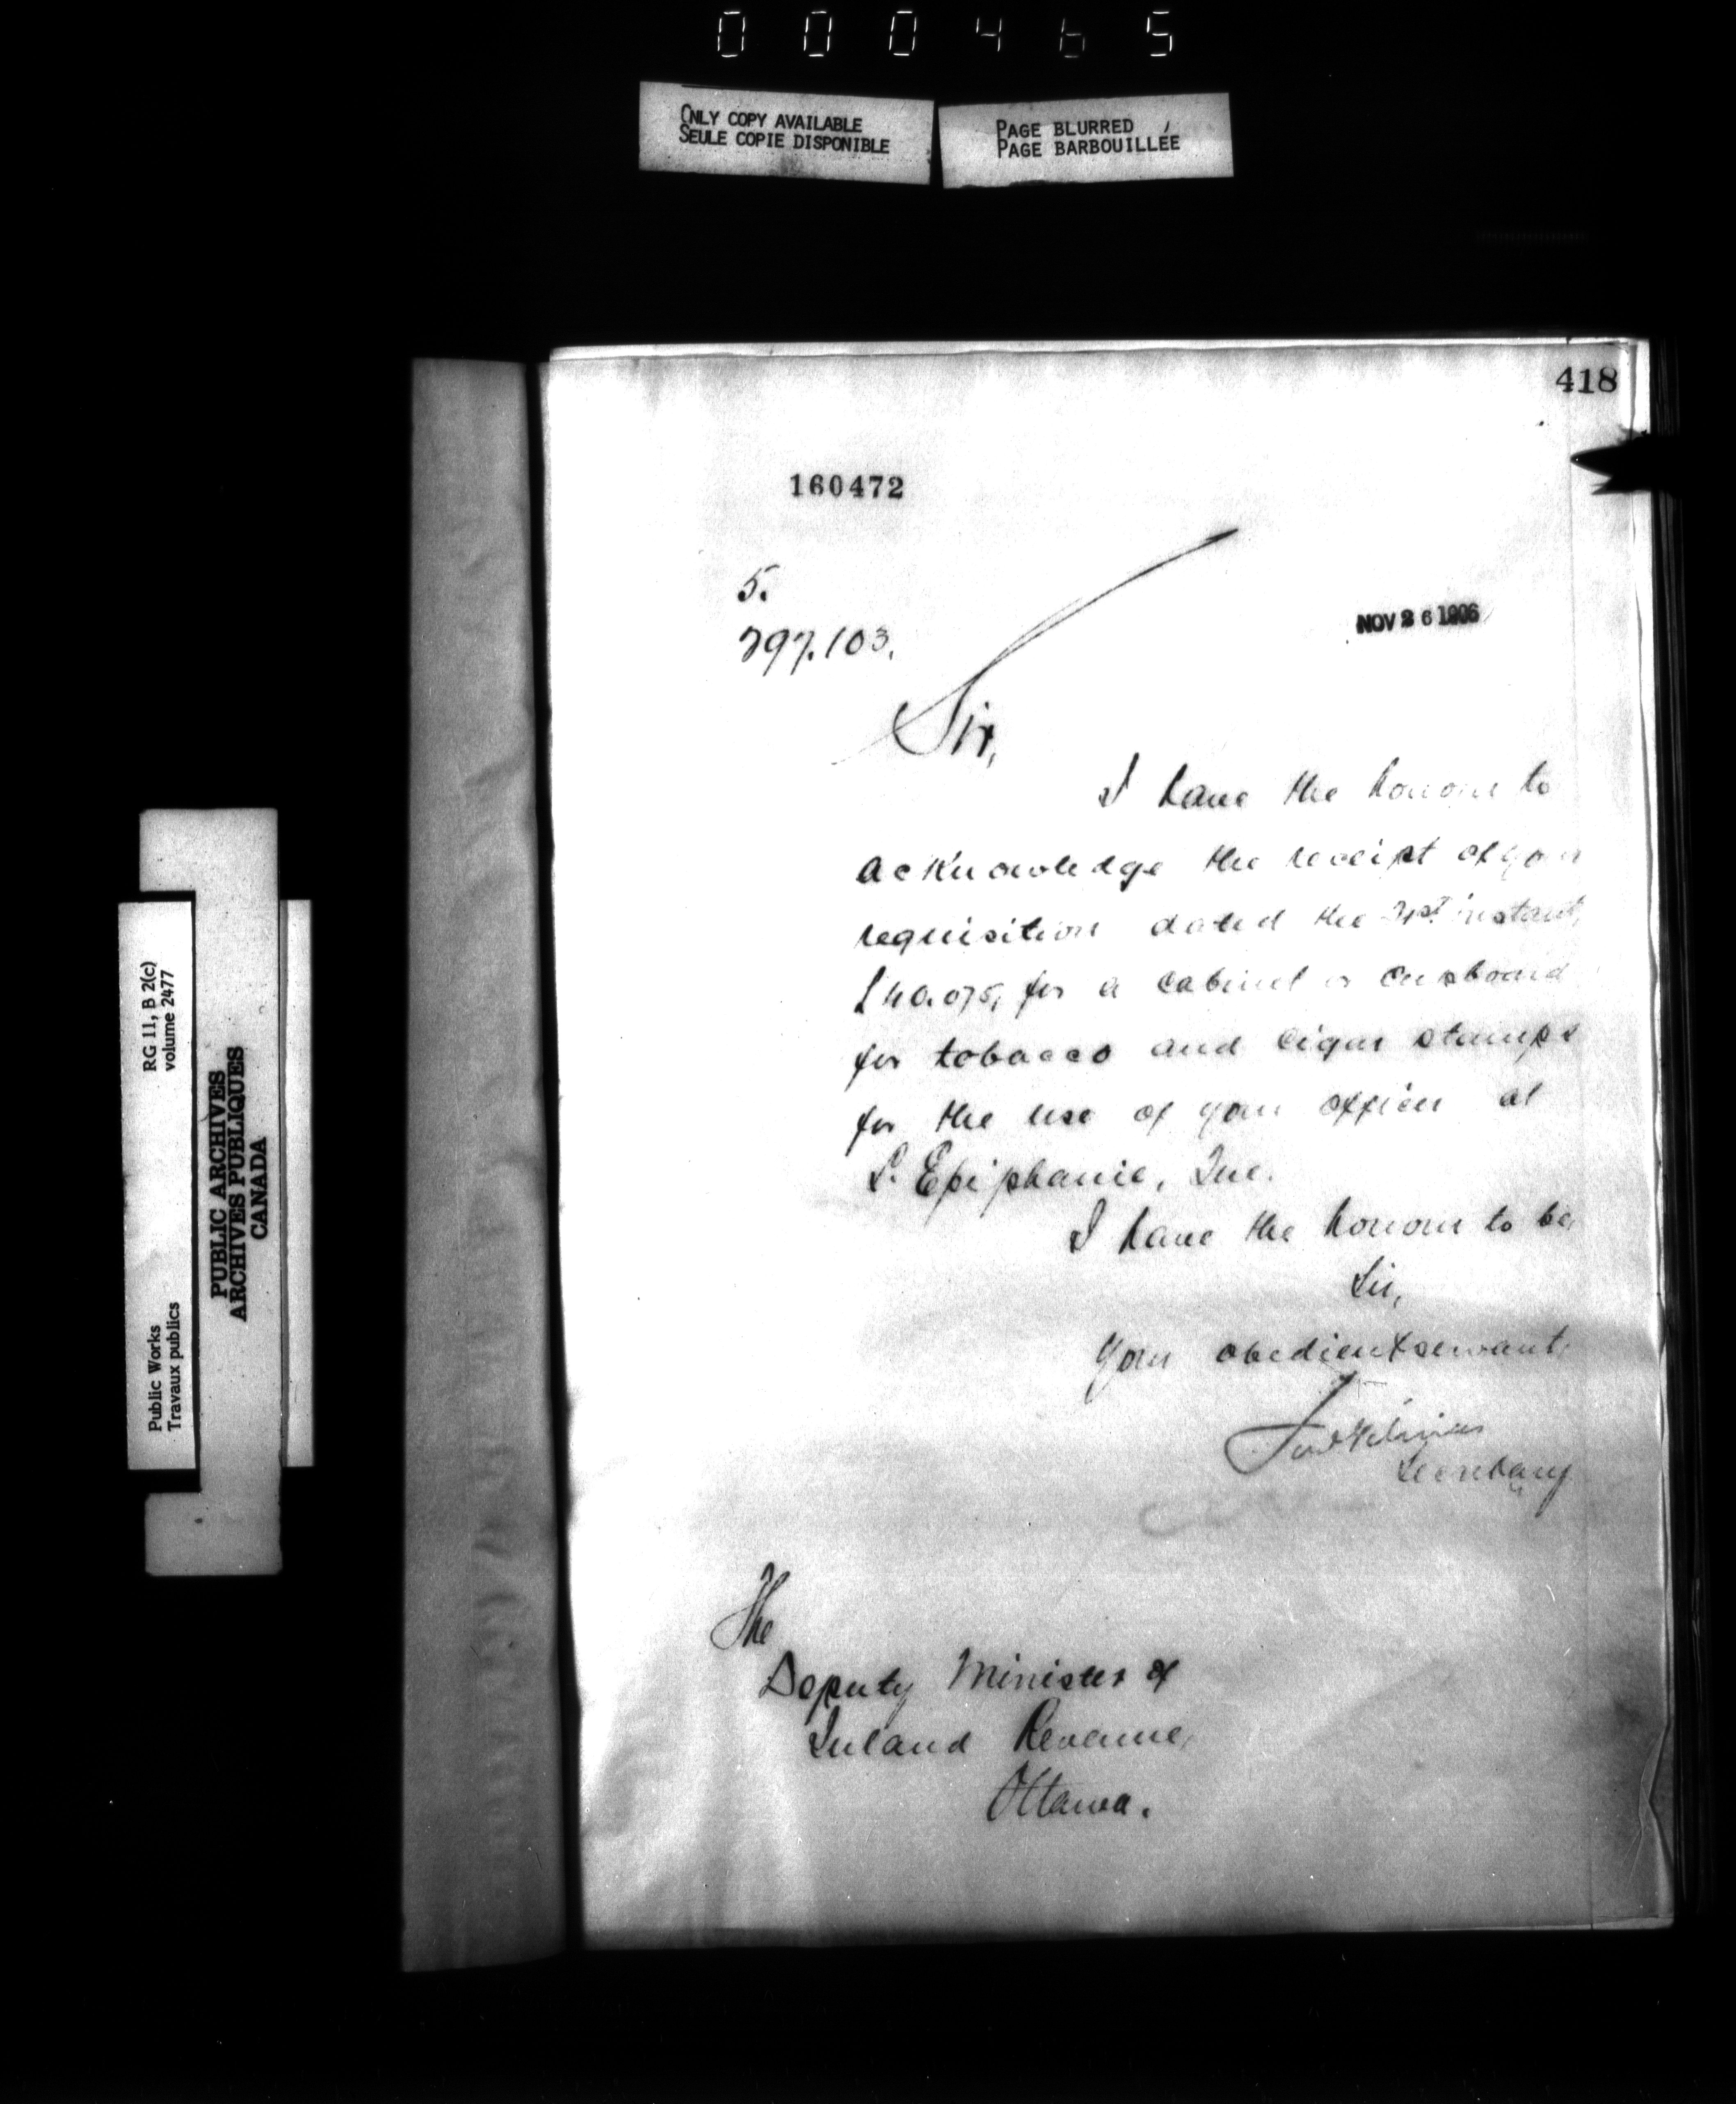 000465
ONLY COPY AVAILABLE
SEULE COPIE DISPONIBLE
PAGE BLURRED
PAGE BARBOUILLÉE
418
160472
5.
297.103.
NOV 26 1906
Sir,
I have the honour to
acknowledge the receipt of your
requisition dated the 21st instant,
for a cabinet or cupboard
for tobacco and cigar stamps
for the use of your officer at
S. Epiphanie, Que.
I have the honour to be,
Sir,
Your obedient servant,
Secretary
The
Deputy Minister of
Inland Revenue,
Ottawa.
RG 11, B 2(c)
volume 2477
PUBLIC ARCHIVES
ARCHIVES PUBLIQUES
CANADA
Public Works
Travaux publics